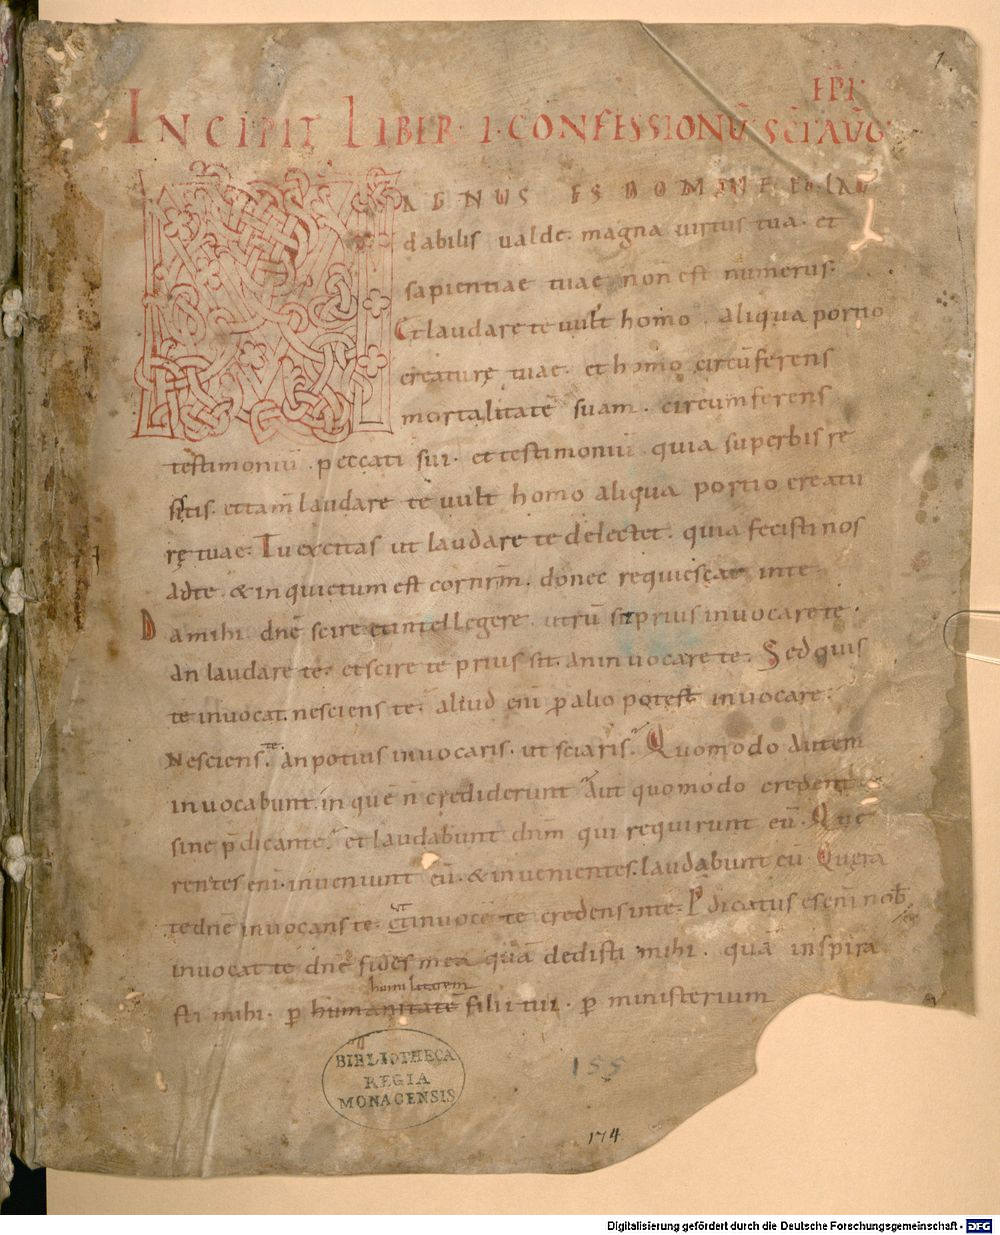 1.
EPI
INCIPIT LIBER · I · CONFESSIONŪ SCĪ AUG
MAGNUS ES DOMINE & LAU
dabilis ualde· magna uirtus tua· et
sapientiae tuae non est numerus·
Et laudare te uult homo· aliqua portio
creaturę tuae· et homo circūferens
mortalitatē suam· circumferens
testimoniū peccati sui· et testimoniū quia superbis re
sistis· et tam̄ laudare te uult homo aliqua portio creatu
rę tuae· Tu excitas ut laudare te delectet· quia fecisti nos
ad te· & inquietum est cor nr̄m· donec requiescat in te·
Da mihi dn̄e scire et intellegere· utrū sit prius inuocare te·
an laudare te· et scire te prius sit· an inuocare te· Sed quis
te inuocat nesciens te· aliud eni̅ p̱ alio potest inuocare·
te·
Nesciens· An potius inuocaris· ut sciaris· Quomodo autem
inuocabunt· in quē n̄ crediderunt Aut quomodo credent
sine p̄dicante· et laudabunt dnm̄ qui requirunt eū· Que
rentes eni· inueniunt eū· & inuenientes· laudabunt eū Queram
te dn̄e inuocans te· & inuocē te credens in te· P̄dicatus es eni̅ nob̄·
inuocat te dn̄e fides mea quā dedisti mihi· quā inspira
humilitatem
sti mihi· ꝑ humanitatē filii tui· ꝑ ministerium
BIBLIOTHECA
REGIA
MONACENSIS
155
174
Digitalisierung gefördert durch die Deutsche Forschungsgemeinschaft - DFG